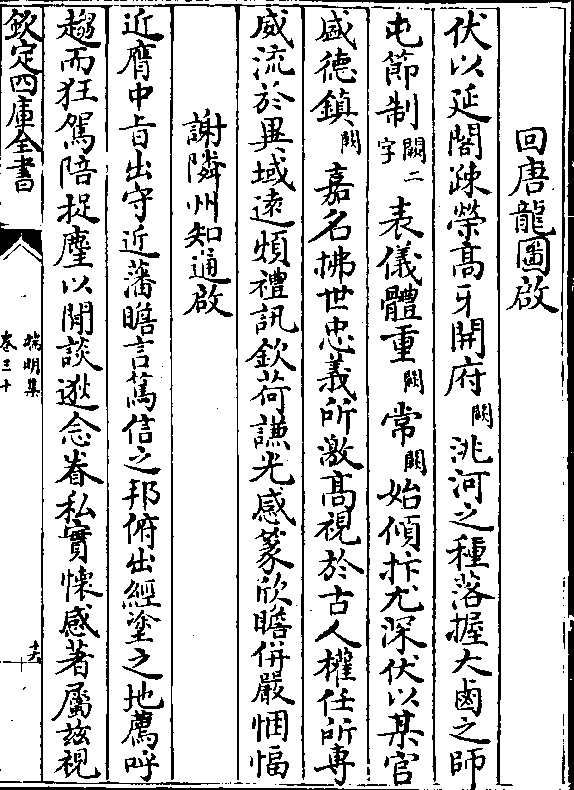 回唐龍圖啟
伏以延閣疎榮高牙開府闕洮河之種落握大鹵之師
屯節制闕二字表儀體重闕常闕始傾抃尤深伏以某官
盛德鎮闕嘉名拂世忠義所激高視於古人權任所專
威流於異域逺煩禮訊欽荷謙光感篆欣瞻併嚴悃愊
謝隣州知通啟
近膺中㫖出守近藩瞻言篤信之邦俯出經塗之地薦呼
趨而狂駕陪捉麈以閒談逖念眷私實懐感著屬兹視
欽定四庫全書
端明集
卷三十